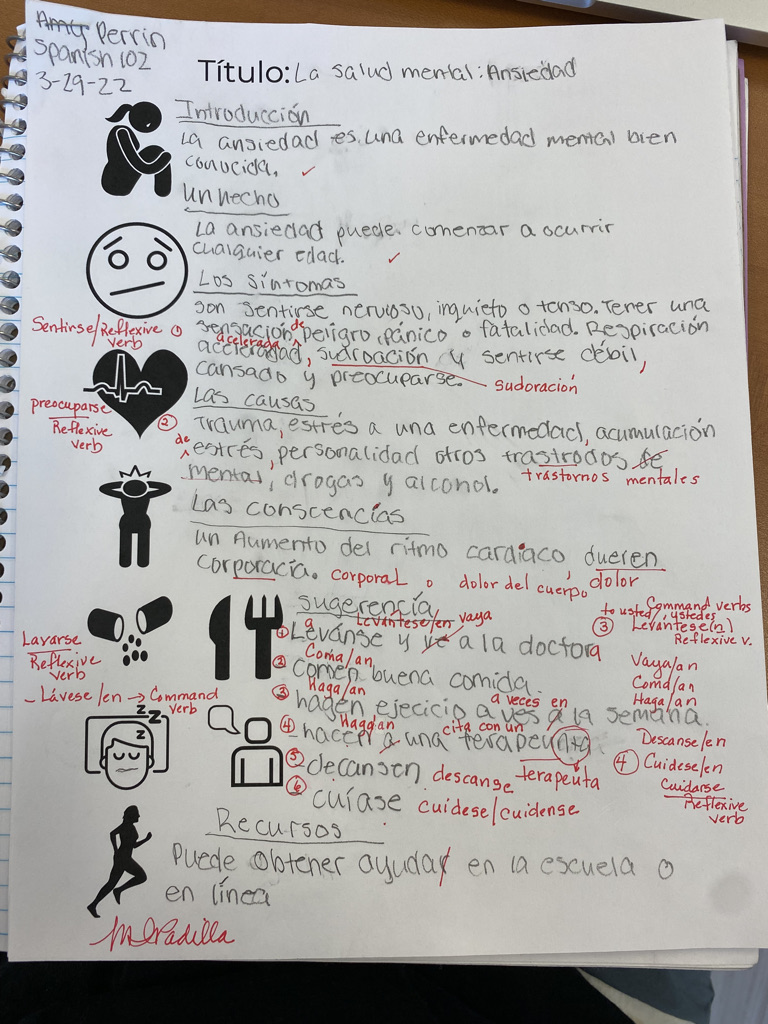 Amy Perrin
Spanish 102
3-29-22
Título: La salud mental: Ansiedad
Introducción
La ansiedad es una enfermedad mental bien
conocida. ✓
Un hecho
La ansiedad puede comenzar a ocurrir
cualquier edad. ✓
Los síntomas
son sentirse nervioso, inquieto o tenso. Tener una
Sentirse/Reflexive ①
verb
sensación de peligro, pánico o fatalidad. Respiración
acelerada
, sudroación y sentirse débil,
cansado y preocuparse.
sudoración
preocuparse
Reflexive
verb
Las causas
② Trauma, estrés a una enfermedad, acumulación
de
estrés, personalidad otros trastrodos de
mental, drogas y alcohol.
trastornos mentales
Las conscencías
un Aumento del ritmo cardiaco, dueren
corporacía. corporal o dolor del cuerpo
dolor
Sugerencía
Command verbs
to usted/ustedes
③ Levántese(n)
Reflexive v.
Vaya/an
Coma/an
Haga/an
Descanse/en
④ Cuídese/en
Cuidarse
Reflexive
verb
Lavarse
Reflexive
verb
- Lávese/en → Command
verb
a Levántese/en vaya
① Levánse y ve a la doctora
Coma/an
② comen buena comida.
Haga/an a veces en
③ hagen ejecicio a ves a la semana.
Hagan cita con un
④ hacen a una terapeunta.
⑤ decansen descanse terapeuta
⑥ cuíase cuídese/cuídense
z z z
z
Recursos
Puede obtener ayudar en la escuela o
en línea
Padilla